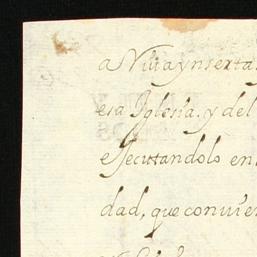 a Villa ynserta
esa Iglesia, y del
eJecutandolo en
dad, que convien